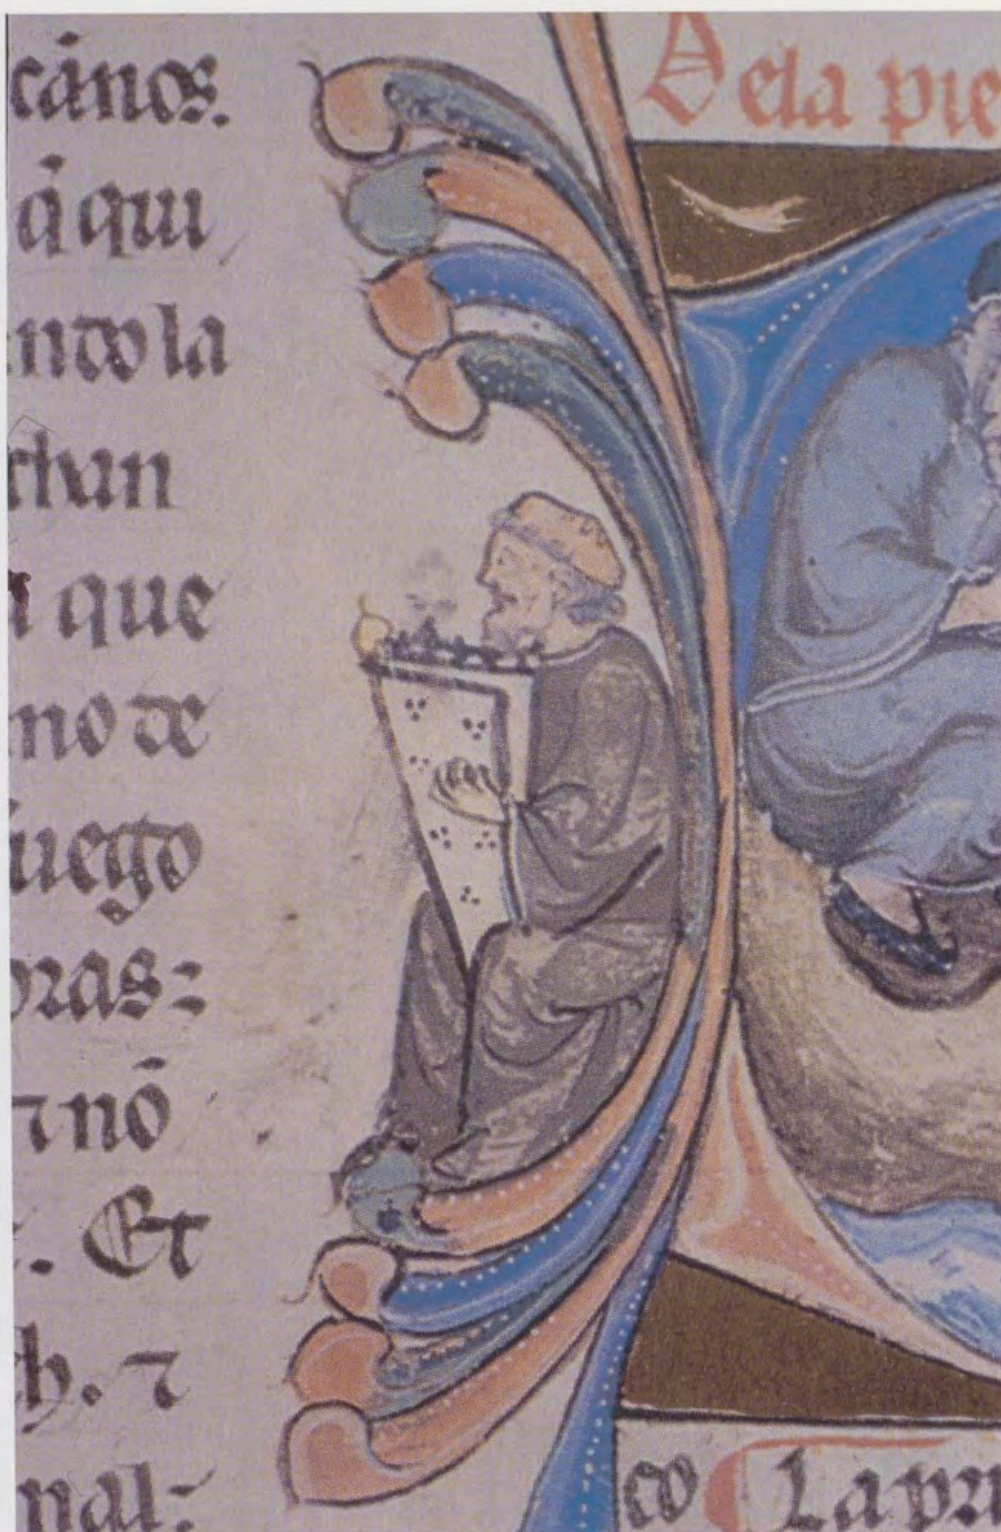 cãnos.
q̃ qui
ndo la
chan
que
mo de
fuego
bras:
⁊ nõ
. Et
ch. ⁊
nal:
Dela pie
co La pri